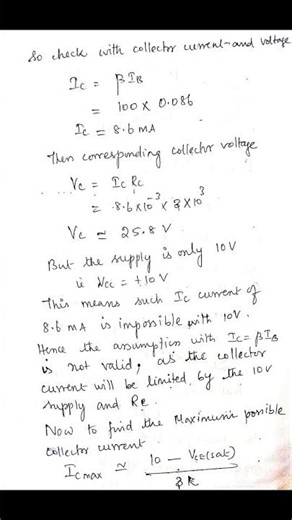 So check with collector current and voltage
Ic = βIB
= 100 x 0.086
Ic = 8.6 mA
Then corresponding collector voltage
Vc = Ic Rc
= 8.6 x 10⁻³ x 3 x 10³
Vc ≃ 25.8 V
But the supply is only 10V
ie Vcc = +10V
This means such Ic current of
8.6 mA is impossible with 10V.
Hence the assumption with Ic = βIB
is not valid, as the collector
current will be limited by the 10V
supply and Rc.
Now to find the Maximum possible
collector current
Icmax ≃ 10 - Vce(sat)
3k